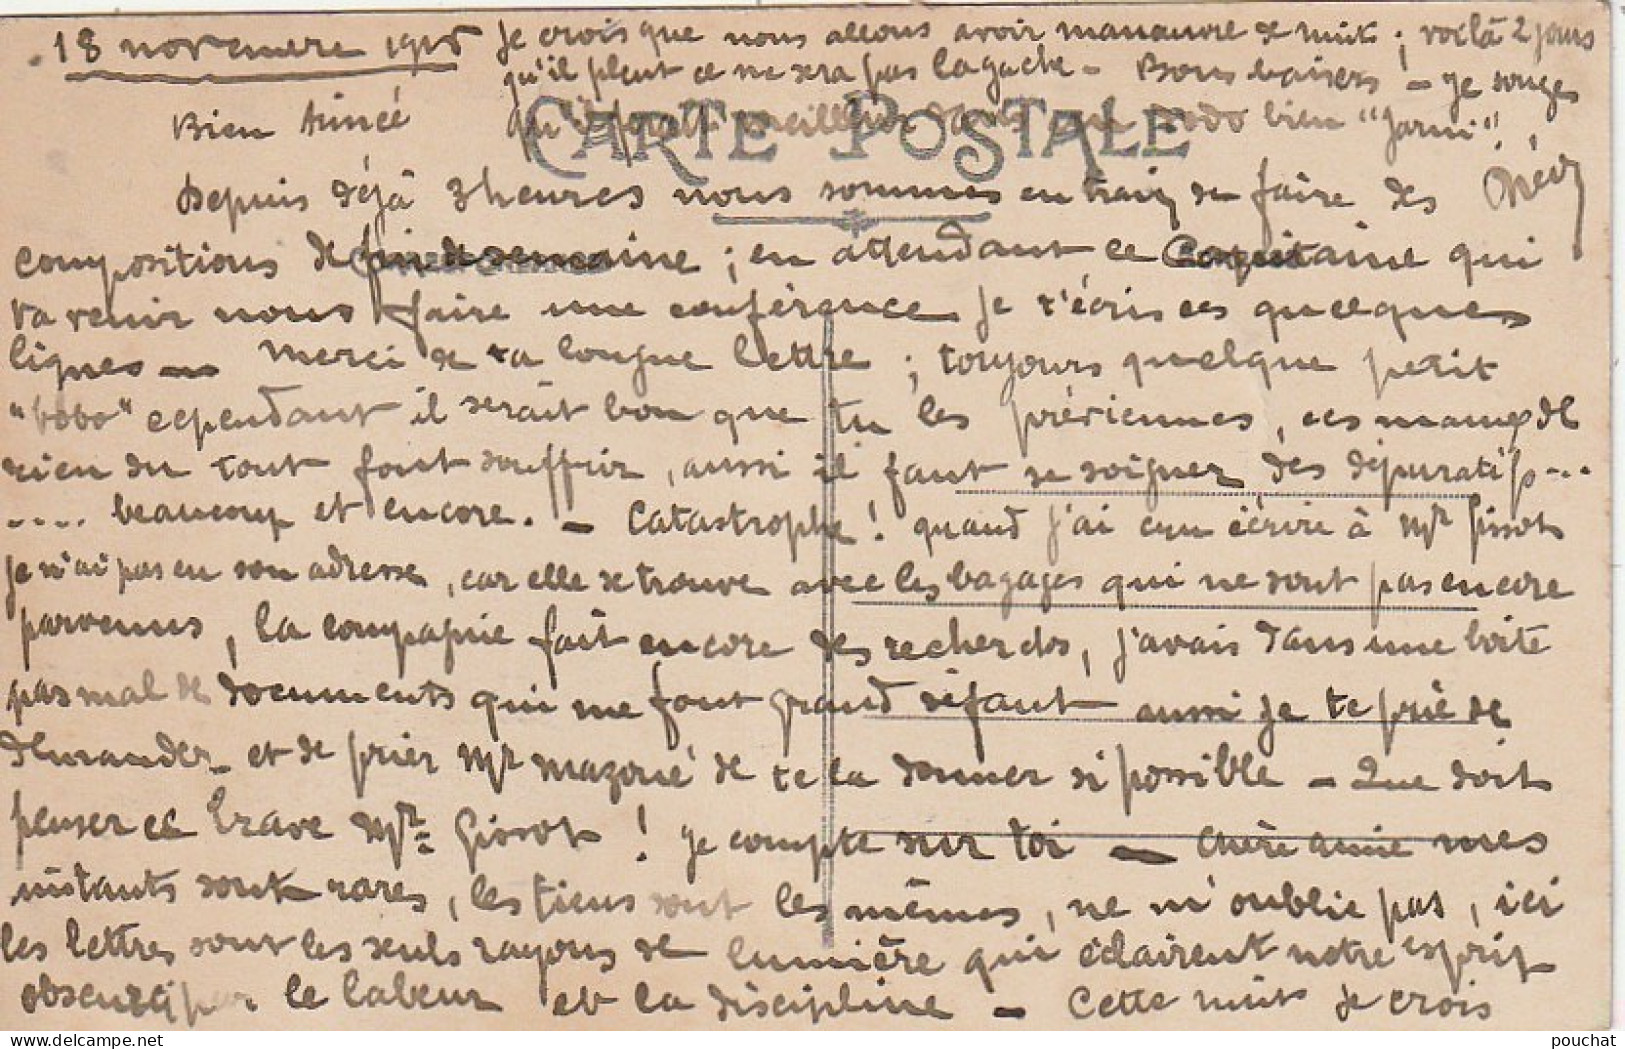 18 novembre 1915
Bien Aimée
CARTE POSTALE
Depuis déjà 3 heures nous sommes en train de faire des
compositions de fin de semaine ; en attendant ce Capitaine qui
va venir nous faire une conférence je t'écris ces quelques
lignes — Merci de ta longue lettre ; toujours quelque petit
"bobo" cependant il serait bon que tu les préviennes, ces maux de
rien du tout font souffrir, aussi il faut se soigner des dépuratifs ...
.... beaucoup et encore. — Catastrophe ! quand j'ai cru écrire à Mr Gissot
je n'ai pas eu son adresse, car elle se trouve avec les bagages qui ne sont pas encore
parvenus, la compagnie fait encore des recherches, j'avais dans une boîte
pas mal de documents qui me font grand défaut aussi je te prie de
demander et de prier Mr Mazoué de te la donner si possible — Que doit
penser ce brave Mr Gissot ! je compte sur toi — Chère amie mes
instants sont rares, les tiens sont les mêmes, ne m'oublie pas, ici
les lettres sont les seuls rayons de lumière qui éclairent notre esprit
obscurci par le labeur et la discipline — Cette nuit je crois
Je crois que nous allons avoir manœuvre de nuit ; voilà 2 jours
qu'il pleut ce ne sera pas la gache — Bons baisers — je songes
qu'il ferait meilleur dodo bien "Jarni" !
pouchat